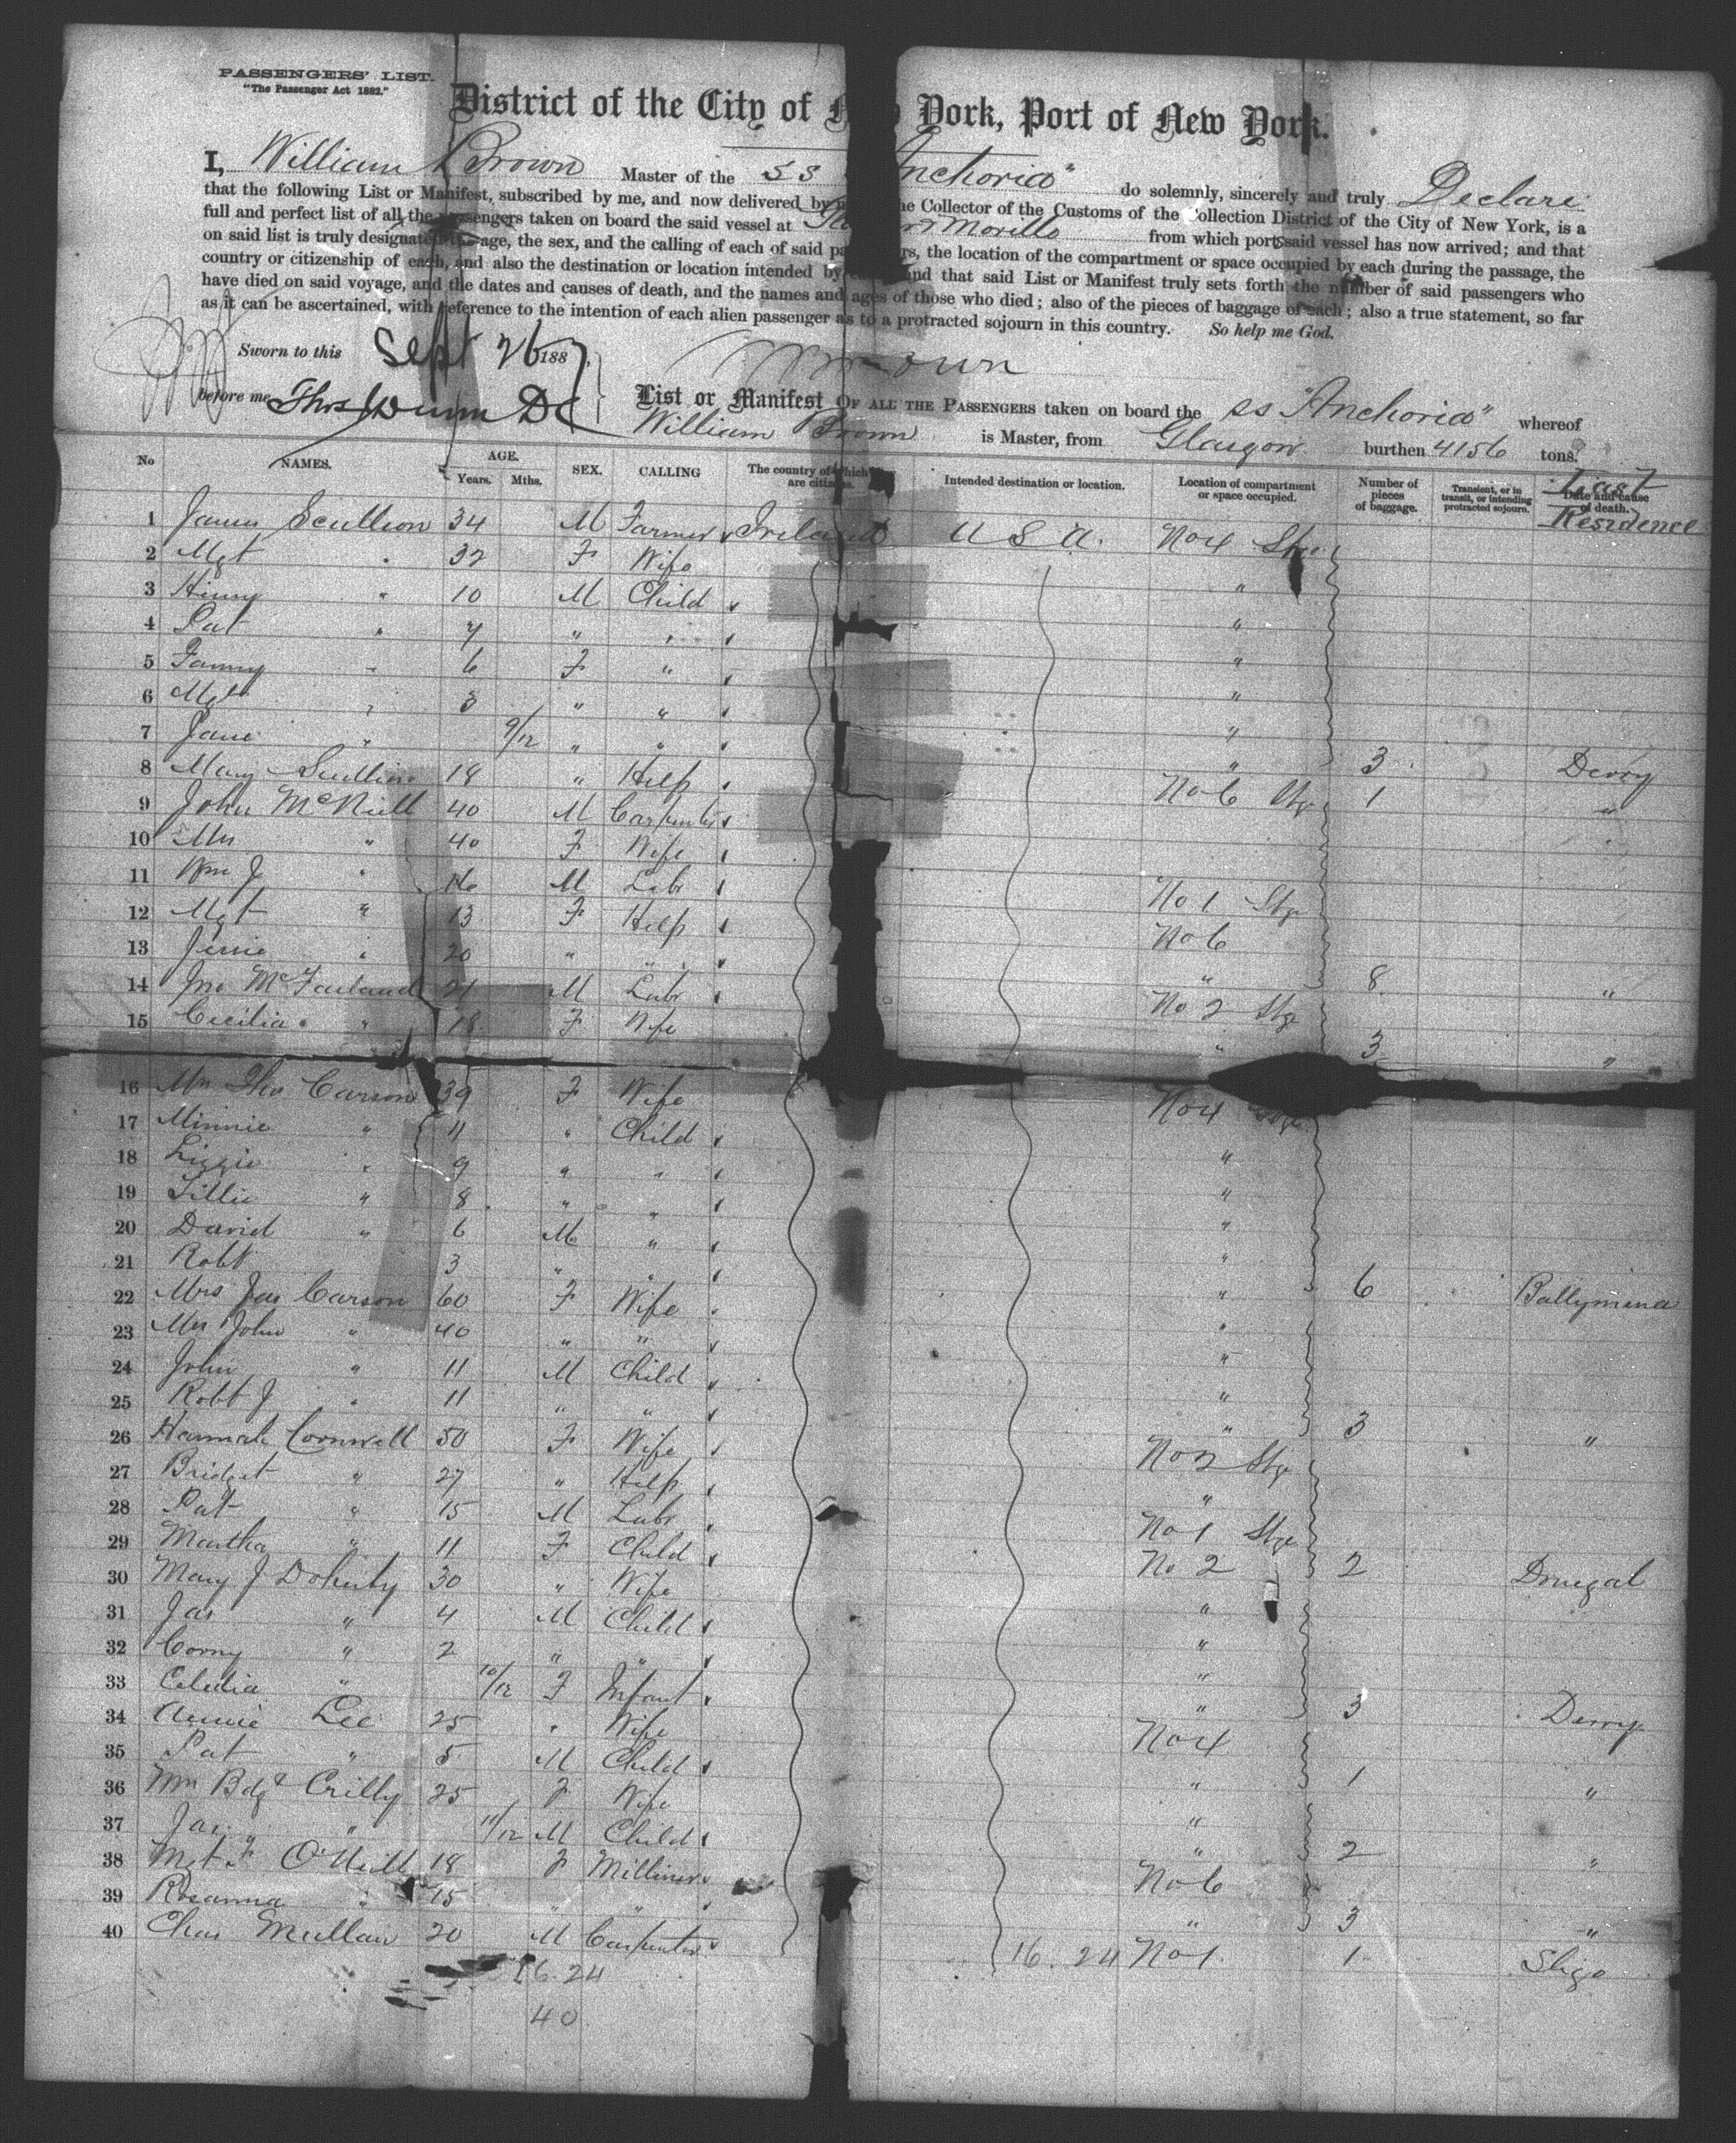 PASSENGERS' LIST.
"The Passenger Act 1882."
District of the City of New York, Port of New York.
I, William Brown Master of the SS "Anchoria" do solemnly, sincerely and truly Declare
that the following List or Manifest, subscribed by me, and now delivered by me to the Collector of the Customs of the Collection District of the City of New York, is a
full and perfect list of all the passengers taken on board the said vessel at Moville from which port said vessel has now arrived; and that
on said list is truly designated the age, the sex, and the calling of each of said passengers, the location of the compartment or space occupied by each during the passage, the
country or citizenship of each, and also the destination or location intended by each and that said List or Manifest truly sets forth the number of said passengers who
have died on said voyage, and the dates and causes of death, and the names and ages of those who died; also of the pieces of baggage of each; also a true statement, so far
as it can be ascertained, with reference to the intention of each alien passenger as to a protracted sojourn in this country. So help me God.
Sworn to this Sept 26 1887
before me Brown
List or Manifest OF ALL THE PASSENGERS taken on board the SS "Anchoria" whereof
William Brown is Master, from Glasgow burthen 4156 tons.
No NAMES. AGE. Years. Mths. SEX. CALLING The country of which they are citizens. Intended destination or location. Location of compartment or space occupied. Number of pieces of baggage. Transient, or in transit, or intending protracted sojourn. Date and cause of death. Last Residence
1 James Scullion 34 M Farmer Ireland U S A. No 4 Stge
2 Mgt " 32 F Wife "
3 Henry " 10 M Child "
4 Pat " 7 " " "
5 Fanny " 6 F " "
6 Mgt " 3 " " "
7 Jane " 9/12 " " " 3 Derry
8 Mary Scullion 18 " Help No 6 Stge 1 "
9 John McNeill 40 M Carpenter
10 Mrs " 40 F Wife
11 Wm J " 16 M Labr No 1 Stge
12 Mgt " 13 F Help No 6
13 Jessie " 20 " " " 8 "
14 Jno McFarland 21 M Labr No 2 Stge
15 Cecilia " 18 F Wife " 3 "
16 Mrs Thos Carson 39 F Wife No 4 Stge
17 Minnie " 11 " Child "
18 Lizzie " 9 " " "
19 Tillie " 8 " " "
20 David " 6 M " "
21 Robt 3 " " " 6 Ballymena
22 Mrs Jas Carson 60 F Wife "
23 Mrs John " 40 " " "
24 John " 11 M Child "
25 Robt J " 11 " " " 3 "
26 Hannah Cornwell 50 F Wife No 2 Stge
27 Bridget " 27 " Help "
28 Pat " 15 M Labr No 1 Stge
29 Martha " 11 F Child No 2 2 Donegal
30 Mary J Doherty 30 " Wife "
31 Jas " 4 M Child "
32 Corny " 2 " " "
33 Celelia " 10/12 F Infant " 3 Derry
34 Annie Lee 25 " Wife No 4
35 Pat " 5 M Child " 1 "
36 Mrs Bdgt Crilly 25 F Wife "
37 Jas " 11/12 M Child " 2 "
38 Mgt F O'Neill 18 F Milliner No 6
39 Rosanna " 15 " " " 3 "
40 Chas Mullan 20 M Carpenter No 1 1 Sligo
16. 24 16. 24
40